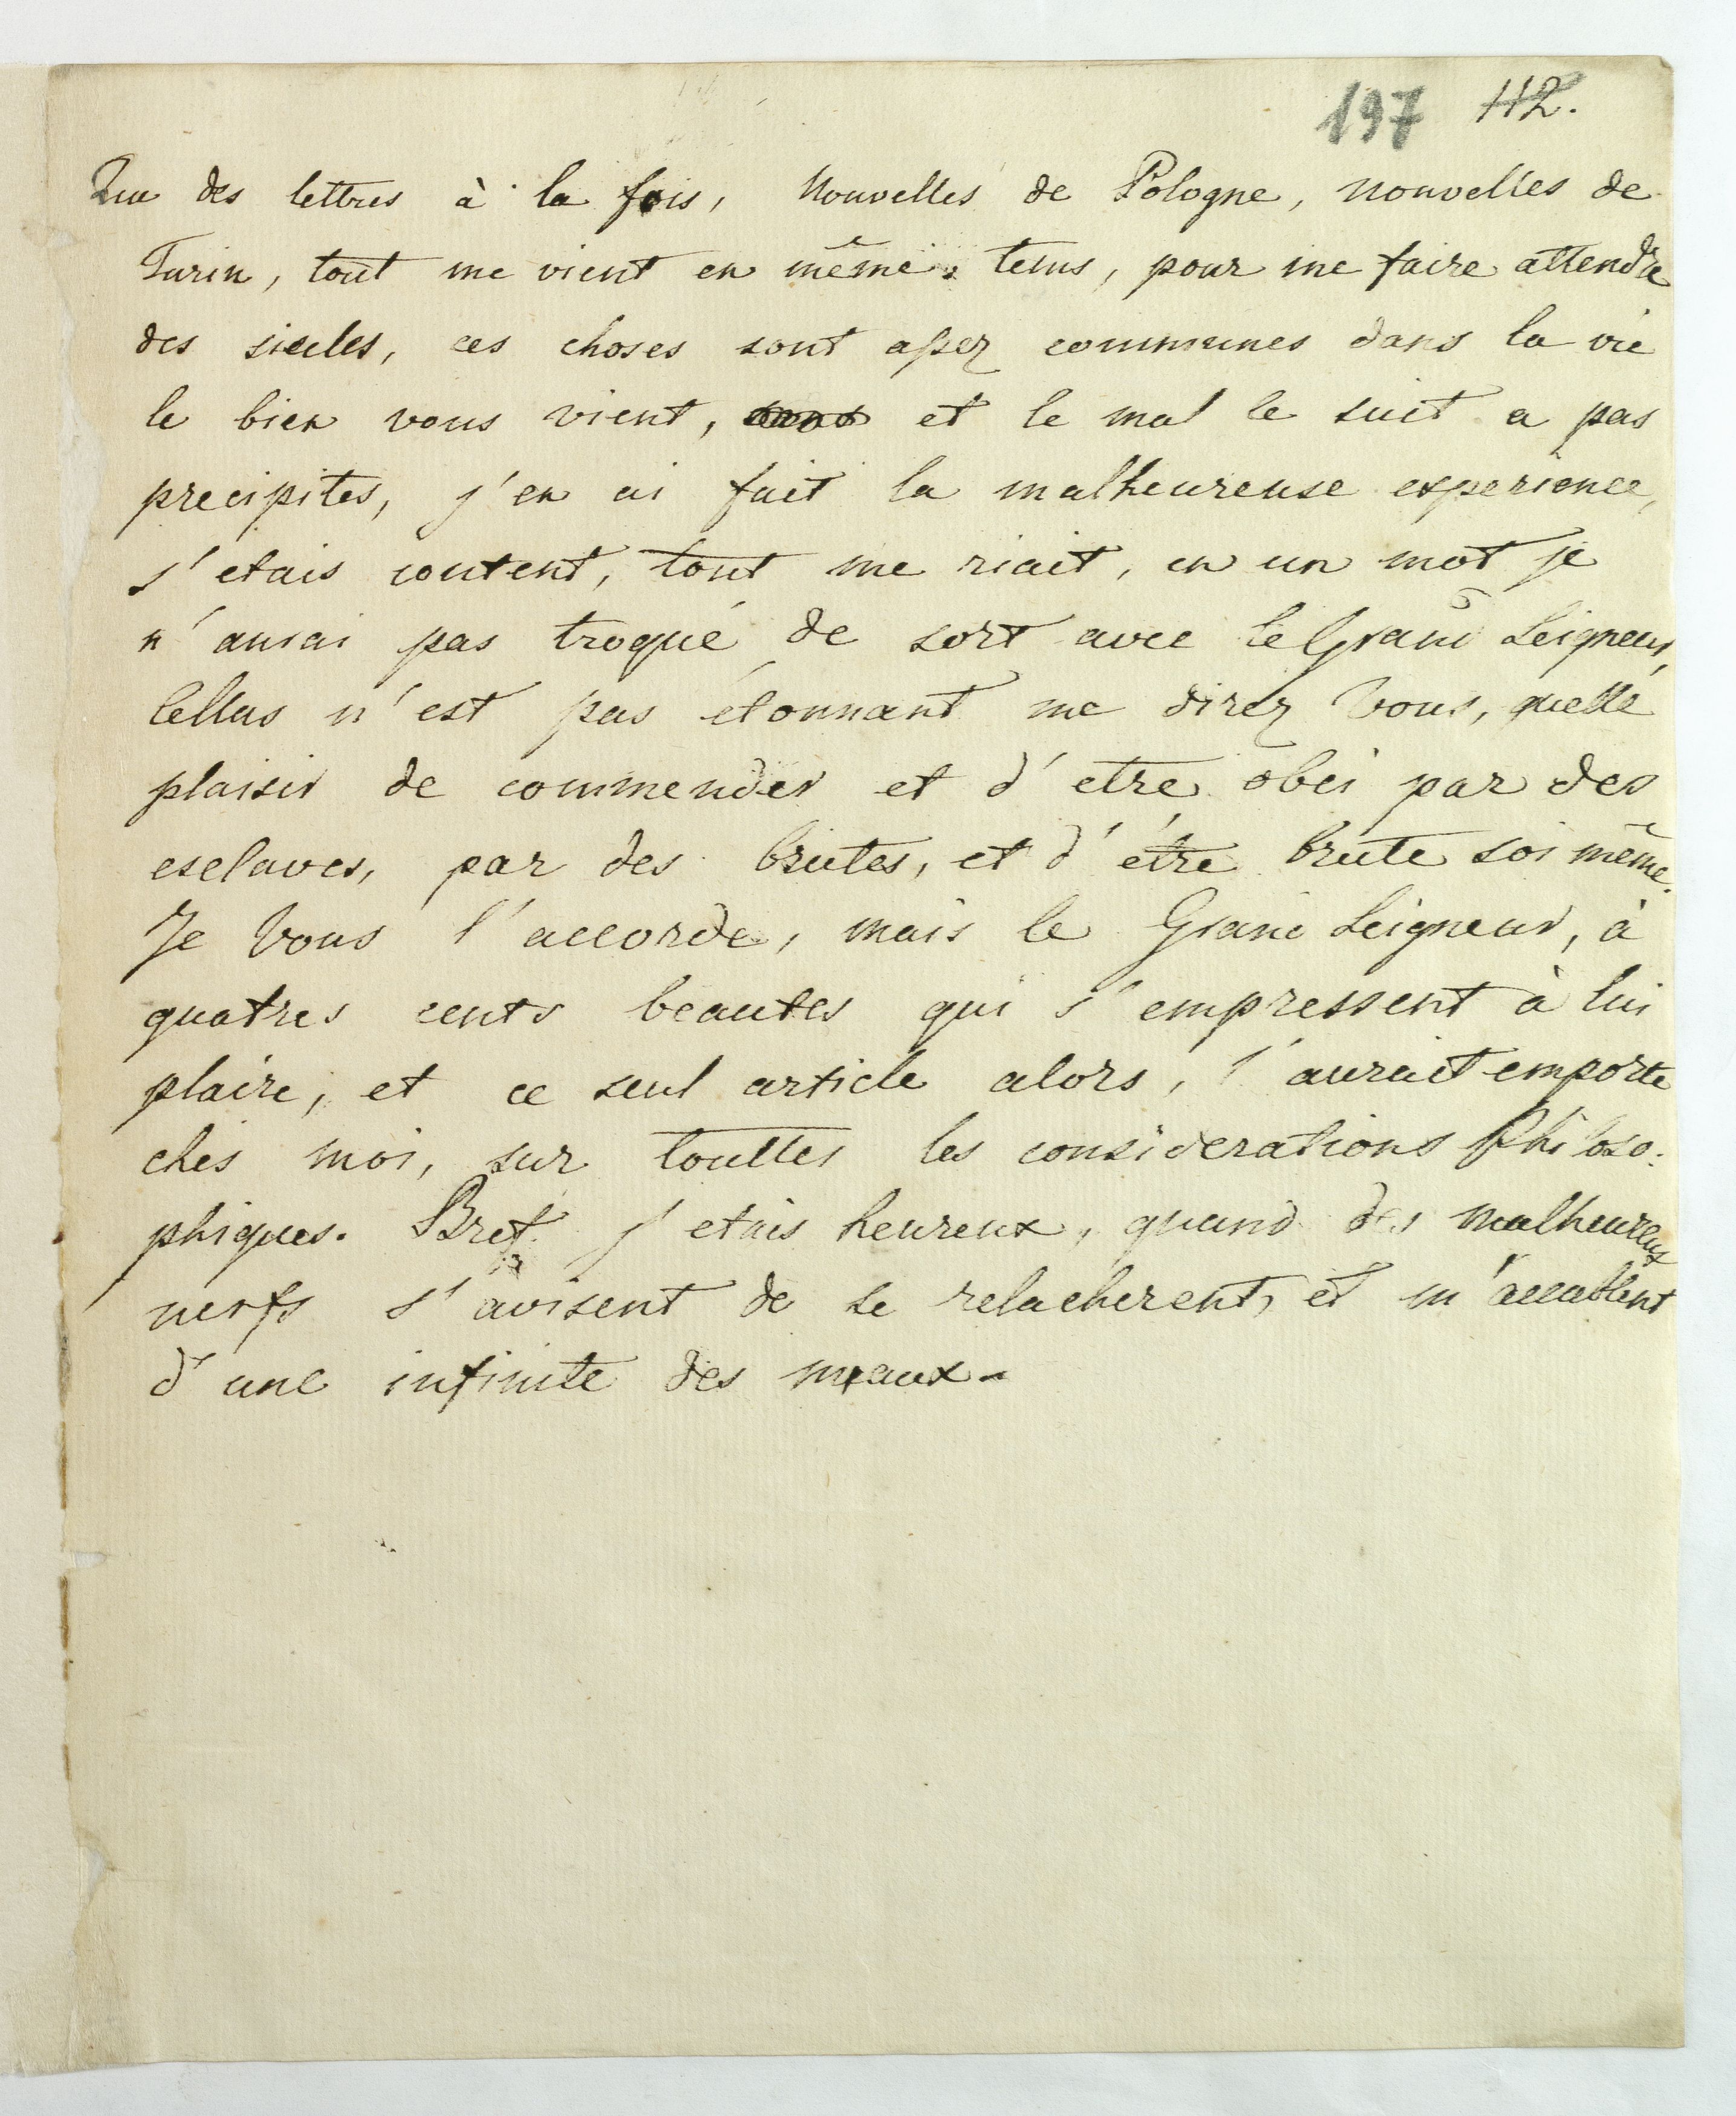 197 112.
Que des lettres à la fois, Nouvelles de Pologne, nouvelles de
Turin, tout me vient en même tems, pour me faire attendre
des siecles, ces choses sont assez communes dans la vie
le bien vous vient, et le mal le suit a pas
precipites, j'en ai fait la malheureuse experience,
j'etais content, tout me riait, en un mot je
n'aurai pas troqué de sort avec le Grand Seigneur,
Cellas n'est pas étonnant me direz Vous, quelle
plaisir de commender et d'etre obei par des
esclaves, par des brutes, et d'être brute soi même.
Je Vous l'accorde, mais le Grand Seigneur, à
quatres cents beautes qui s'empressent à lui
plaire, et ce seul article alors, l'aurait emporte
ches moi, sur touttes les considerations Philoso-
phiques. Bref j'etais heureux, quand des malheureux
nerfs s'avisent de se relacherent, et m'accablent
d'une infinite des maux.